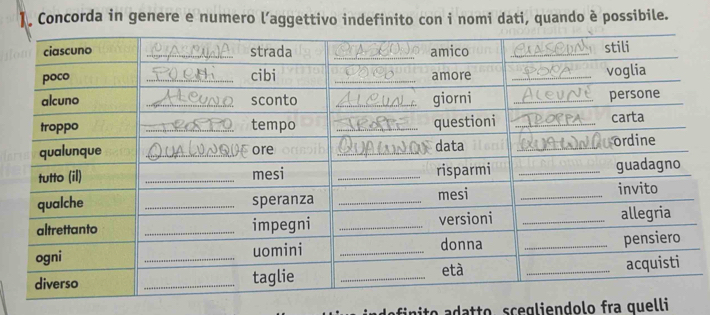 1. Concorda in genere e numero l'aggettivo indefinito con i nomi dati, quando è possibile.
ciascuno CIASCUNA strada CIASCUNO amico CIASCUN stili
poco POCHI cibi POCO amore POCA voglia
alcuno ALCUNO sconto ALCUNI giorni ALCUNE persone
troppo TROPPO tempo TROPPE questioni TROPPA carta
qualunque QUALUNQUE ore QUALUNQUE data QUALUNQUE ordine
tutto (il) mesi risparmi guadagno
qualche speranza mesi invito
altrettanto impegni versioni allegria
ogni uomini donna pensiero
diverso taglie età acquisti
indefinito adatto, scegliendolo fra quelli